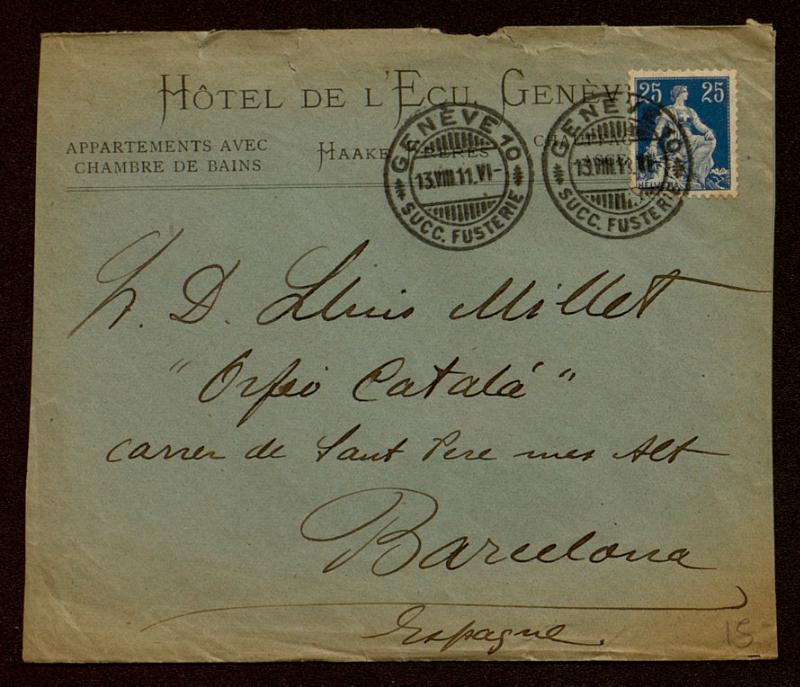 HÔTEL DE L'ECU, GENÈV
APPARTEMENTS AVEC
CHAMBRE DE BAINS
HAAKE
GENÈVE 10
13.VIII.11.VI-
SUCC. FUSTERIE
GENÈVE 10
13.VIII.11.VI-
SUCC. FUSTERIE
25 25
HELVETIA
S. D. Lluis Millet
"Orfeó Catalá"
carrer de Sant Pere mes Alt
Barcelona
Espagne
15